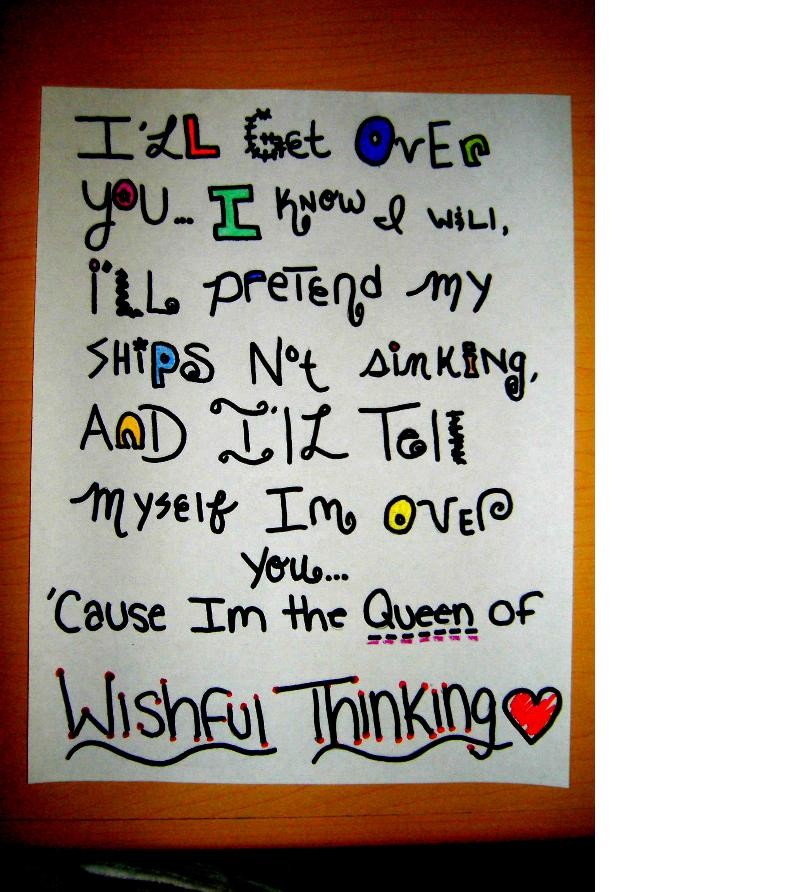 I'LL Get OVER
YOU... I KNOW I WILL,
i'LL PRETEND my
SHiPS Not sinKiNg,
AND I'lL Tell
myself Im OVER
you...
'Cause Im the Queen of
Wishful Thinking